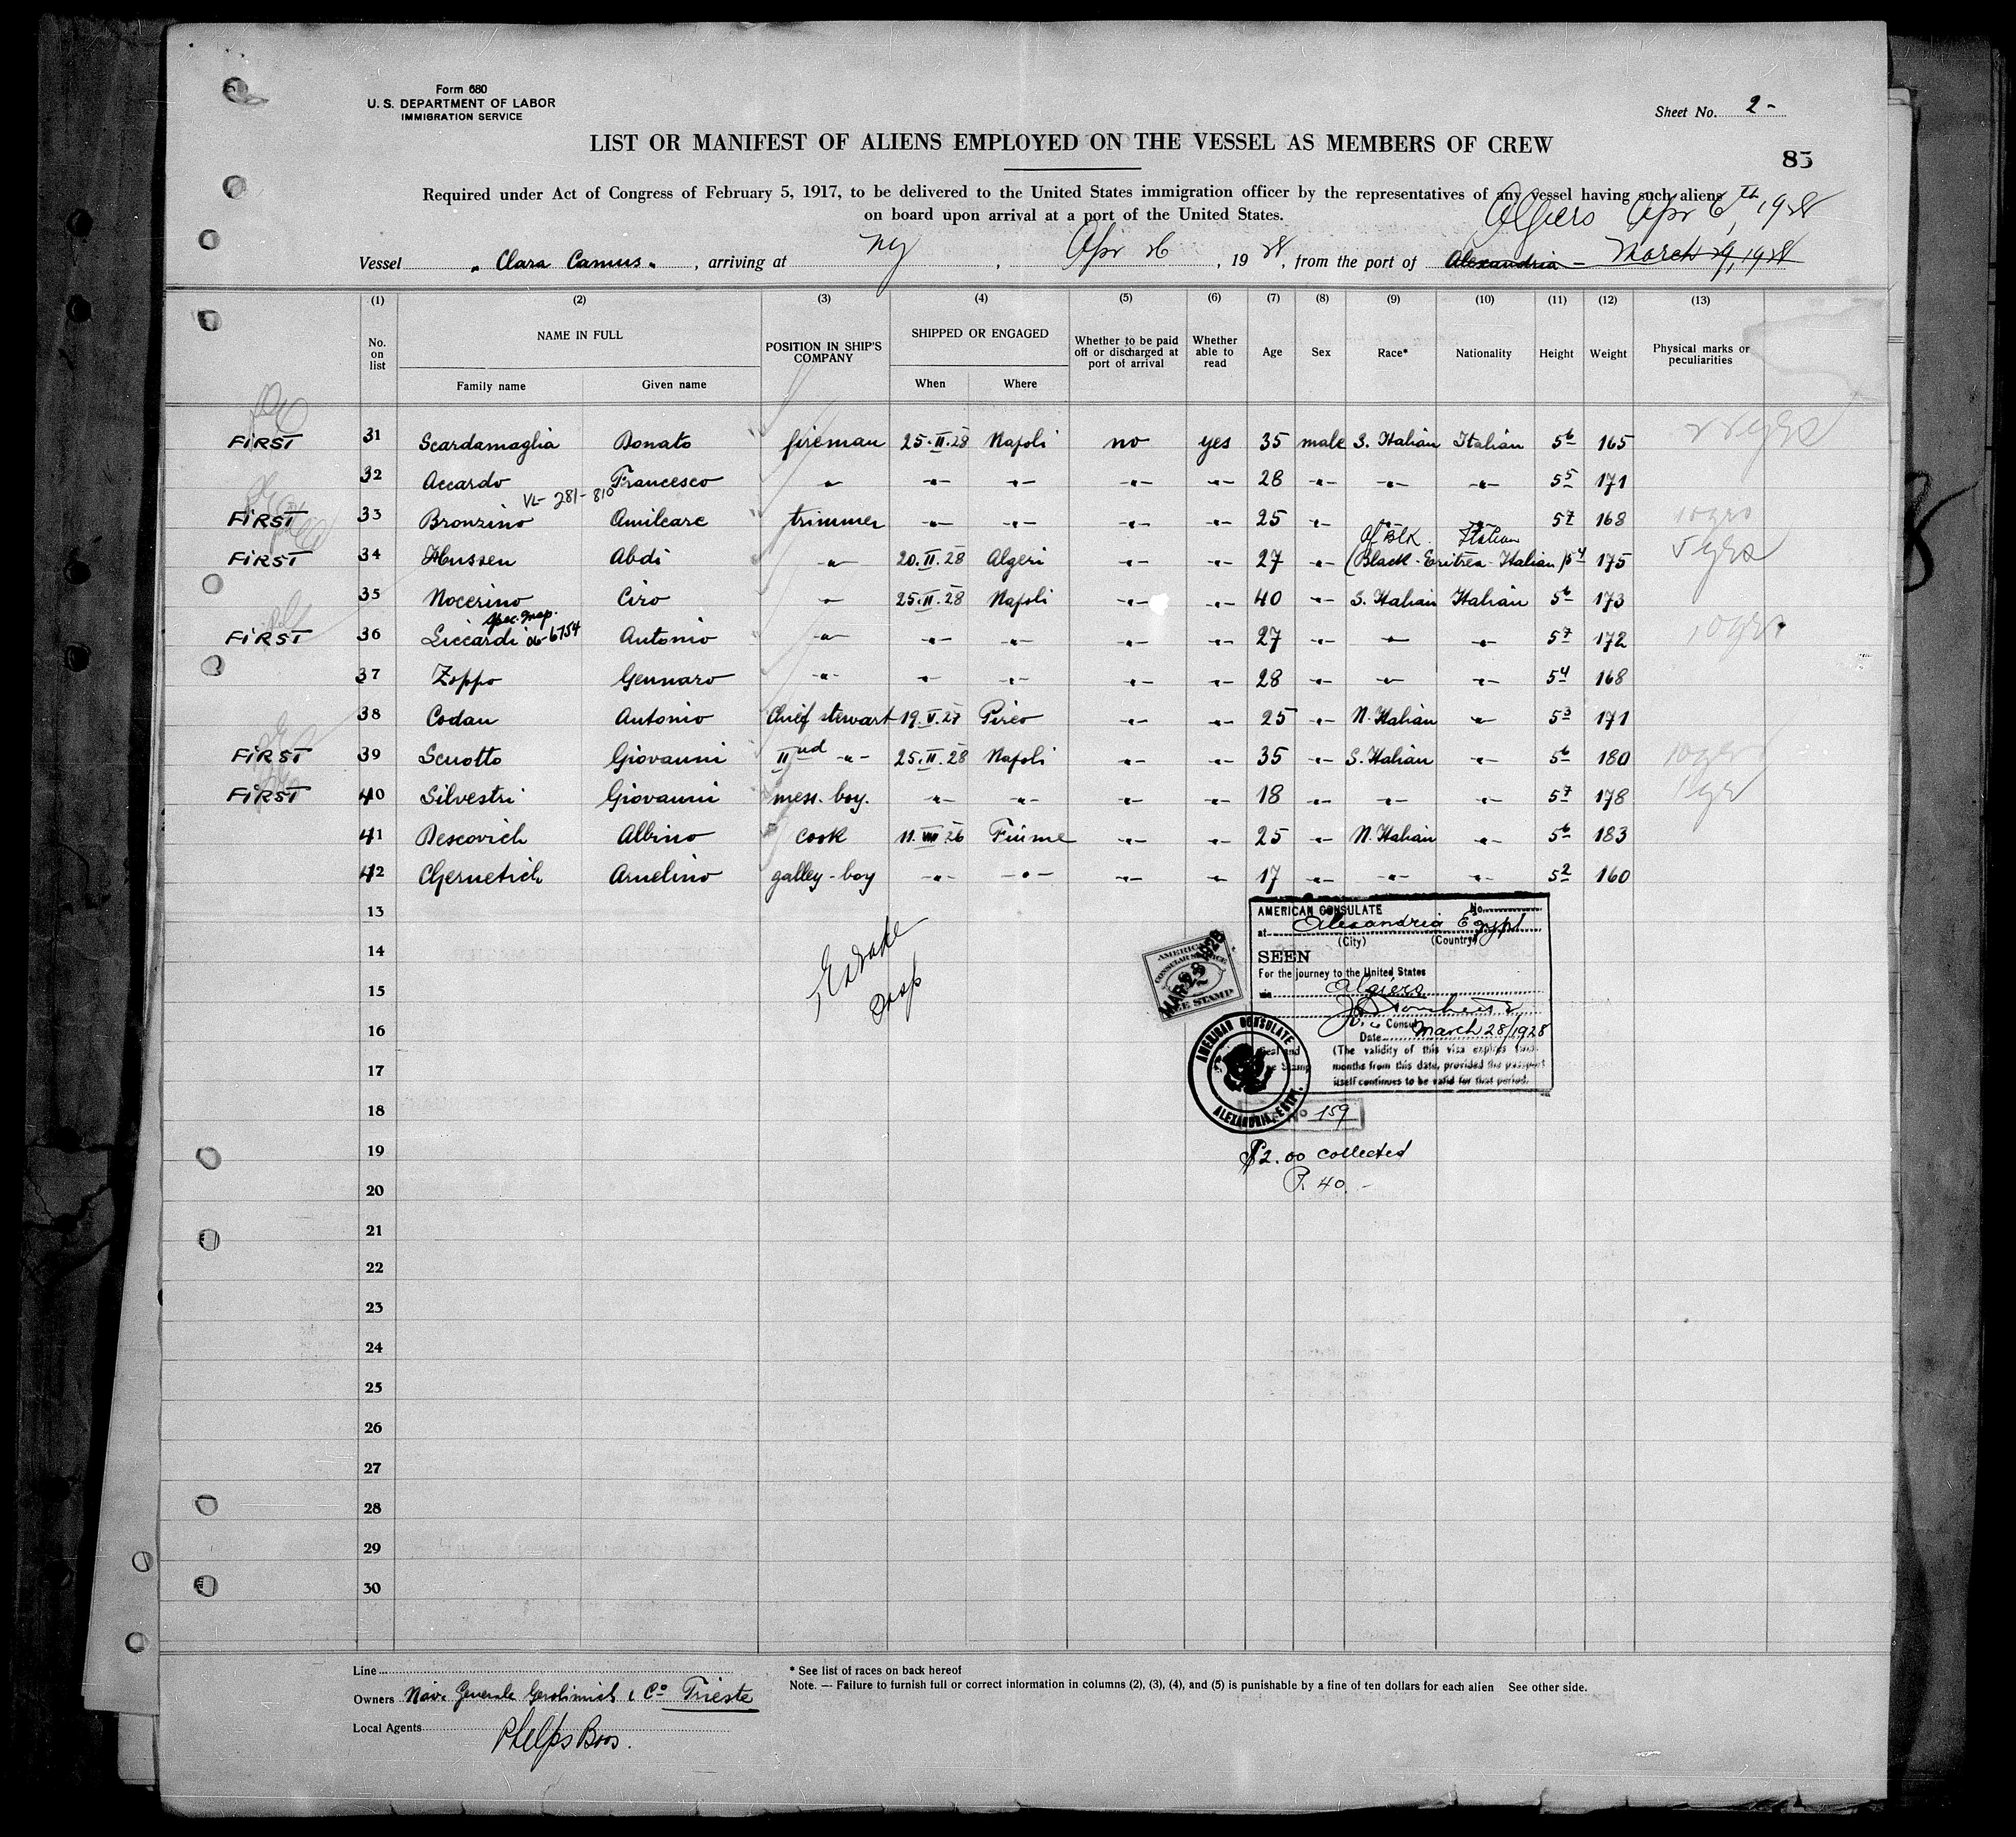 Form 680
U. S. DEPARTMENT OF LABOR
IMMIGRATION SERVICE
Sheet No. 2-
LIST OR MANIFEST OF ALIENS EMPLOYED ON THE VESSEL AS MEMBERS OF CREW
85
Required under Act of Congress of February 5, 1917, to be delivered to the United States immigration officer by the representatives of any vessel having such aliens
on board upon arrival at a port of the United States.
Algiers Apr 6th, 1928
Vessel "Clara Camus", arriving at NY, Apr 26, 1928, from the port of Alexandria - March 29, 1928
(1) (2) (3) (4) (5) (6) (7) (8) (9) (10) (11) (12) (13)
No. on list NAME IN FULL POSITION IN SHIP'S COMPANY SHIPPED OR ENGAGED Whether to be paid off or discharged at port of arrival Whether able to read Age Sex Race* Nationality Height Weight Physical marks or peculiarities
Family name Given name When Where
FIRST 31 Scardamaglia Donato fireman 25.II.28 Napoli no yes 35 male S. Italian Italian 5 6 165
32 Accardo Francesco -"- -"- -"- -"- -"- 28 -"- -"- -"- 5 5 171
VL-281-810
FIRST 33 Bronzino Amilcare trimmer -"- -"- -"- -"- 25 -"- -"- -"- 5 7 168 10 yrs
Af Blk. Italian
FIRST 34 Hussen Abdi -"- 20.II.28 Algeri -"- -"- 27 -"- (Black-Eritrea-Italian) 5 4 175 5 yrs
35 Nocerino Ciro -"- 25.II.28 Napoli -"- -"- 40 -"- S. Italian Italian 5 6 173
Spec. Insp.
FIRST 36 Liccardi 6754 Antonio -"- -"- -"- -"- -"- 27 -"- -"- -"- 5 7 172 10 yrs
37 Zoppo Gennaro -"- -"- -"- -"- -"- 28 -"- -"- -"- 5 4 168
38 Codan Antonio Chief stewart 19.V.27 Pireo -"- -"- 25 -"- N. Italian -"- 5 3 171
FIRST 39 Scuotto Giovanni IInd -"- 25.II.28 Napoli -"- -"- 35 -"- S. Italian -"- 5 6 180 10 yrs
FIRST 40 Silvestri Giovanni mess-boy. -"- -"- -"- -"- 18 -"- -"- -"- 5 7 178 1 yr
41 Descovich Albino cook 11.VIII.26 Fiume -"- -"- 25 -"- N. Italian -"- 5 6 183
42 Chernetich Arnelino galley-boy -"- -"- -"- -"- 17 -"- -"- -"- 5 2 160
13
14
15
16
17
18
19
20
21
22
23
24
25
26
27
28
29
30
Insp
AMERICAN CONSULAR SERVICE
MAR 28 1928
FEE STAMP
AMERICAN CONSULATE No.
at Alexandria Egypt
(City) (Country)
SEEN
For the journey to the United States
via Algiers
Vice Consul
Date March 28/1928
(The validity of this visa expires
months from this date, provided the passport
itself continues to be valid for that period.
AMERICAN CONSULATE
ALEXANDRIA, EGYPT.
No 159
$2.00 collected
P. 40.-
Line
Owners Nav. Generale Gerolimich & Co Trieste
Local Agents Phelps Bros.
* See list of races on back hereof
Note. — Failure to furnish full or correct information in columns (2), (3), (4), and (5) is punishable by a fine of ten dollars for each alien See other side.